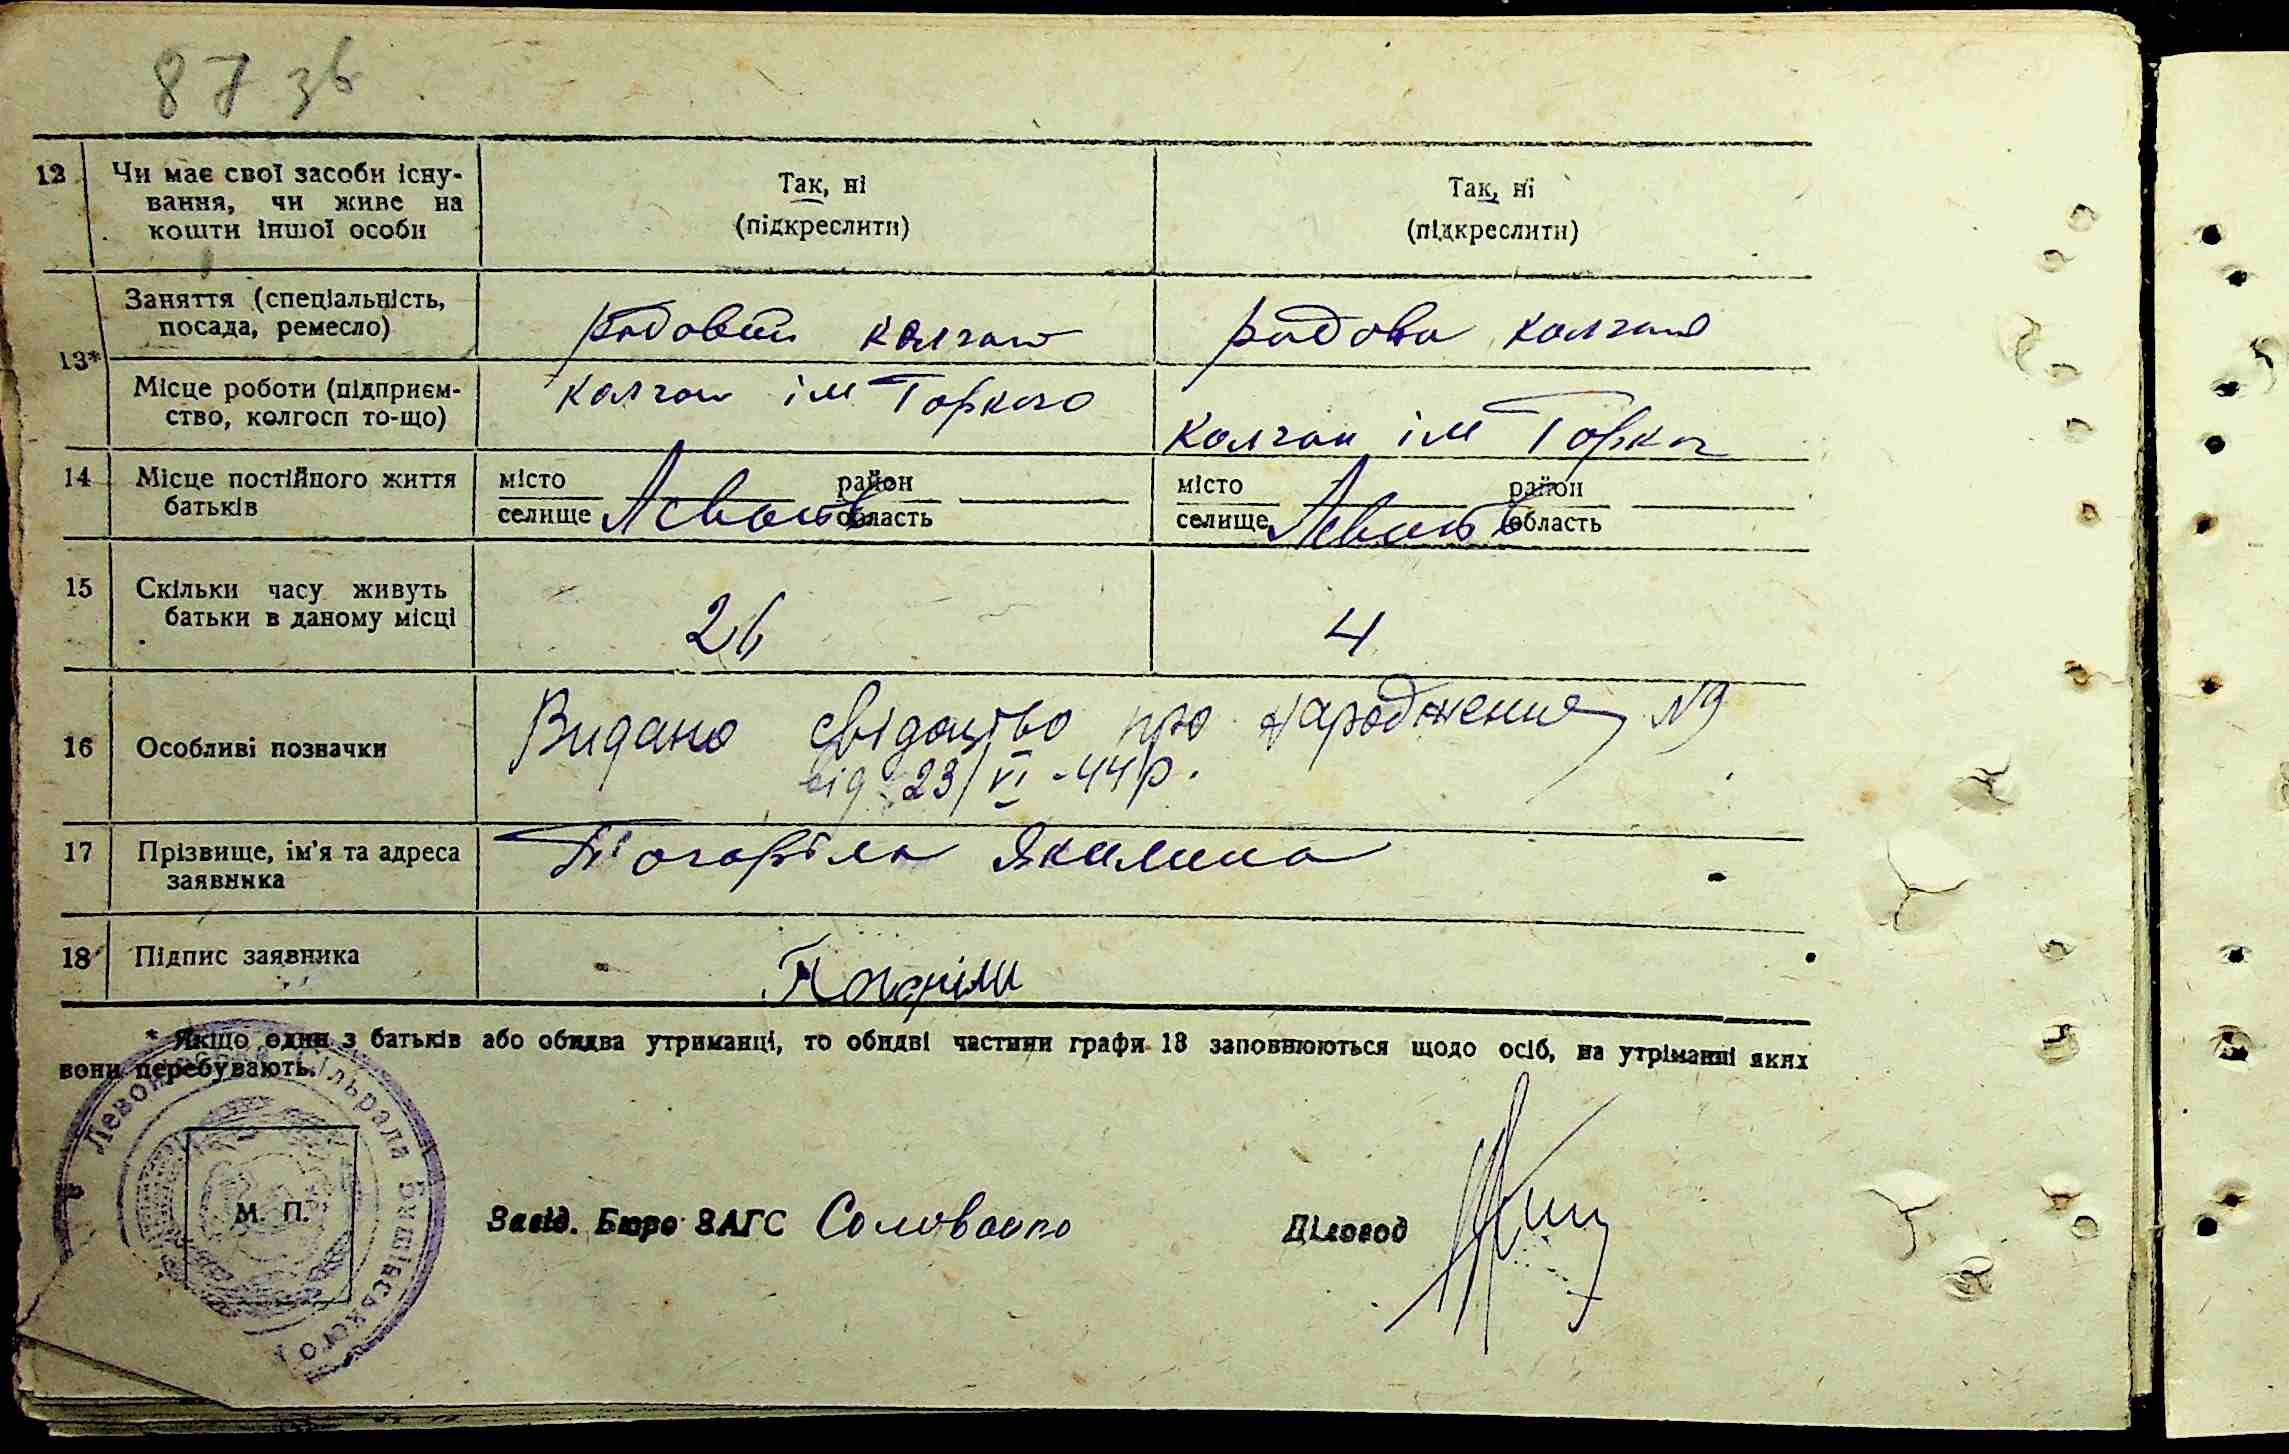 87 зв
12 Чи має свої засоби існу- Так, ні Так, ні
вання, чи живе на (підкреслити) (підкреслити)
кошти іншої особи
13* Заняття (спеціальність,
посада, ремесло) рядовий колгосп рядова колгосп
Місце роботи (підприєм-
ство, колгосп то-що) колгосп ім Горького колгосп ім Горког
14 Місце постійного життя місто район місто район
батьків селище область селище область
15 Скільки часу живуть
батьки в даному місці 26 4
16 Особливі позначки Видано свідоцтво про народження №9
від 23/VI-44р.
17 Прізвище, ім'я та адреса Погоріла Якилина
заявника
18 Підпис заявника Погоріли
* Якщо один з батьків або обидва утриманці, то обидві частини графи 13 заповнюються щодо осіб, на утріманні яких
вони перебувають.
сільрада
М. П.
Завід. Бюро ЗАГС Діловод